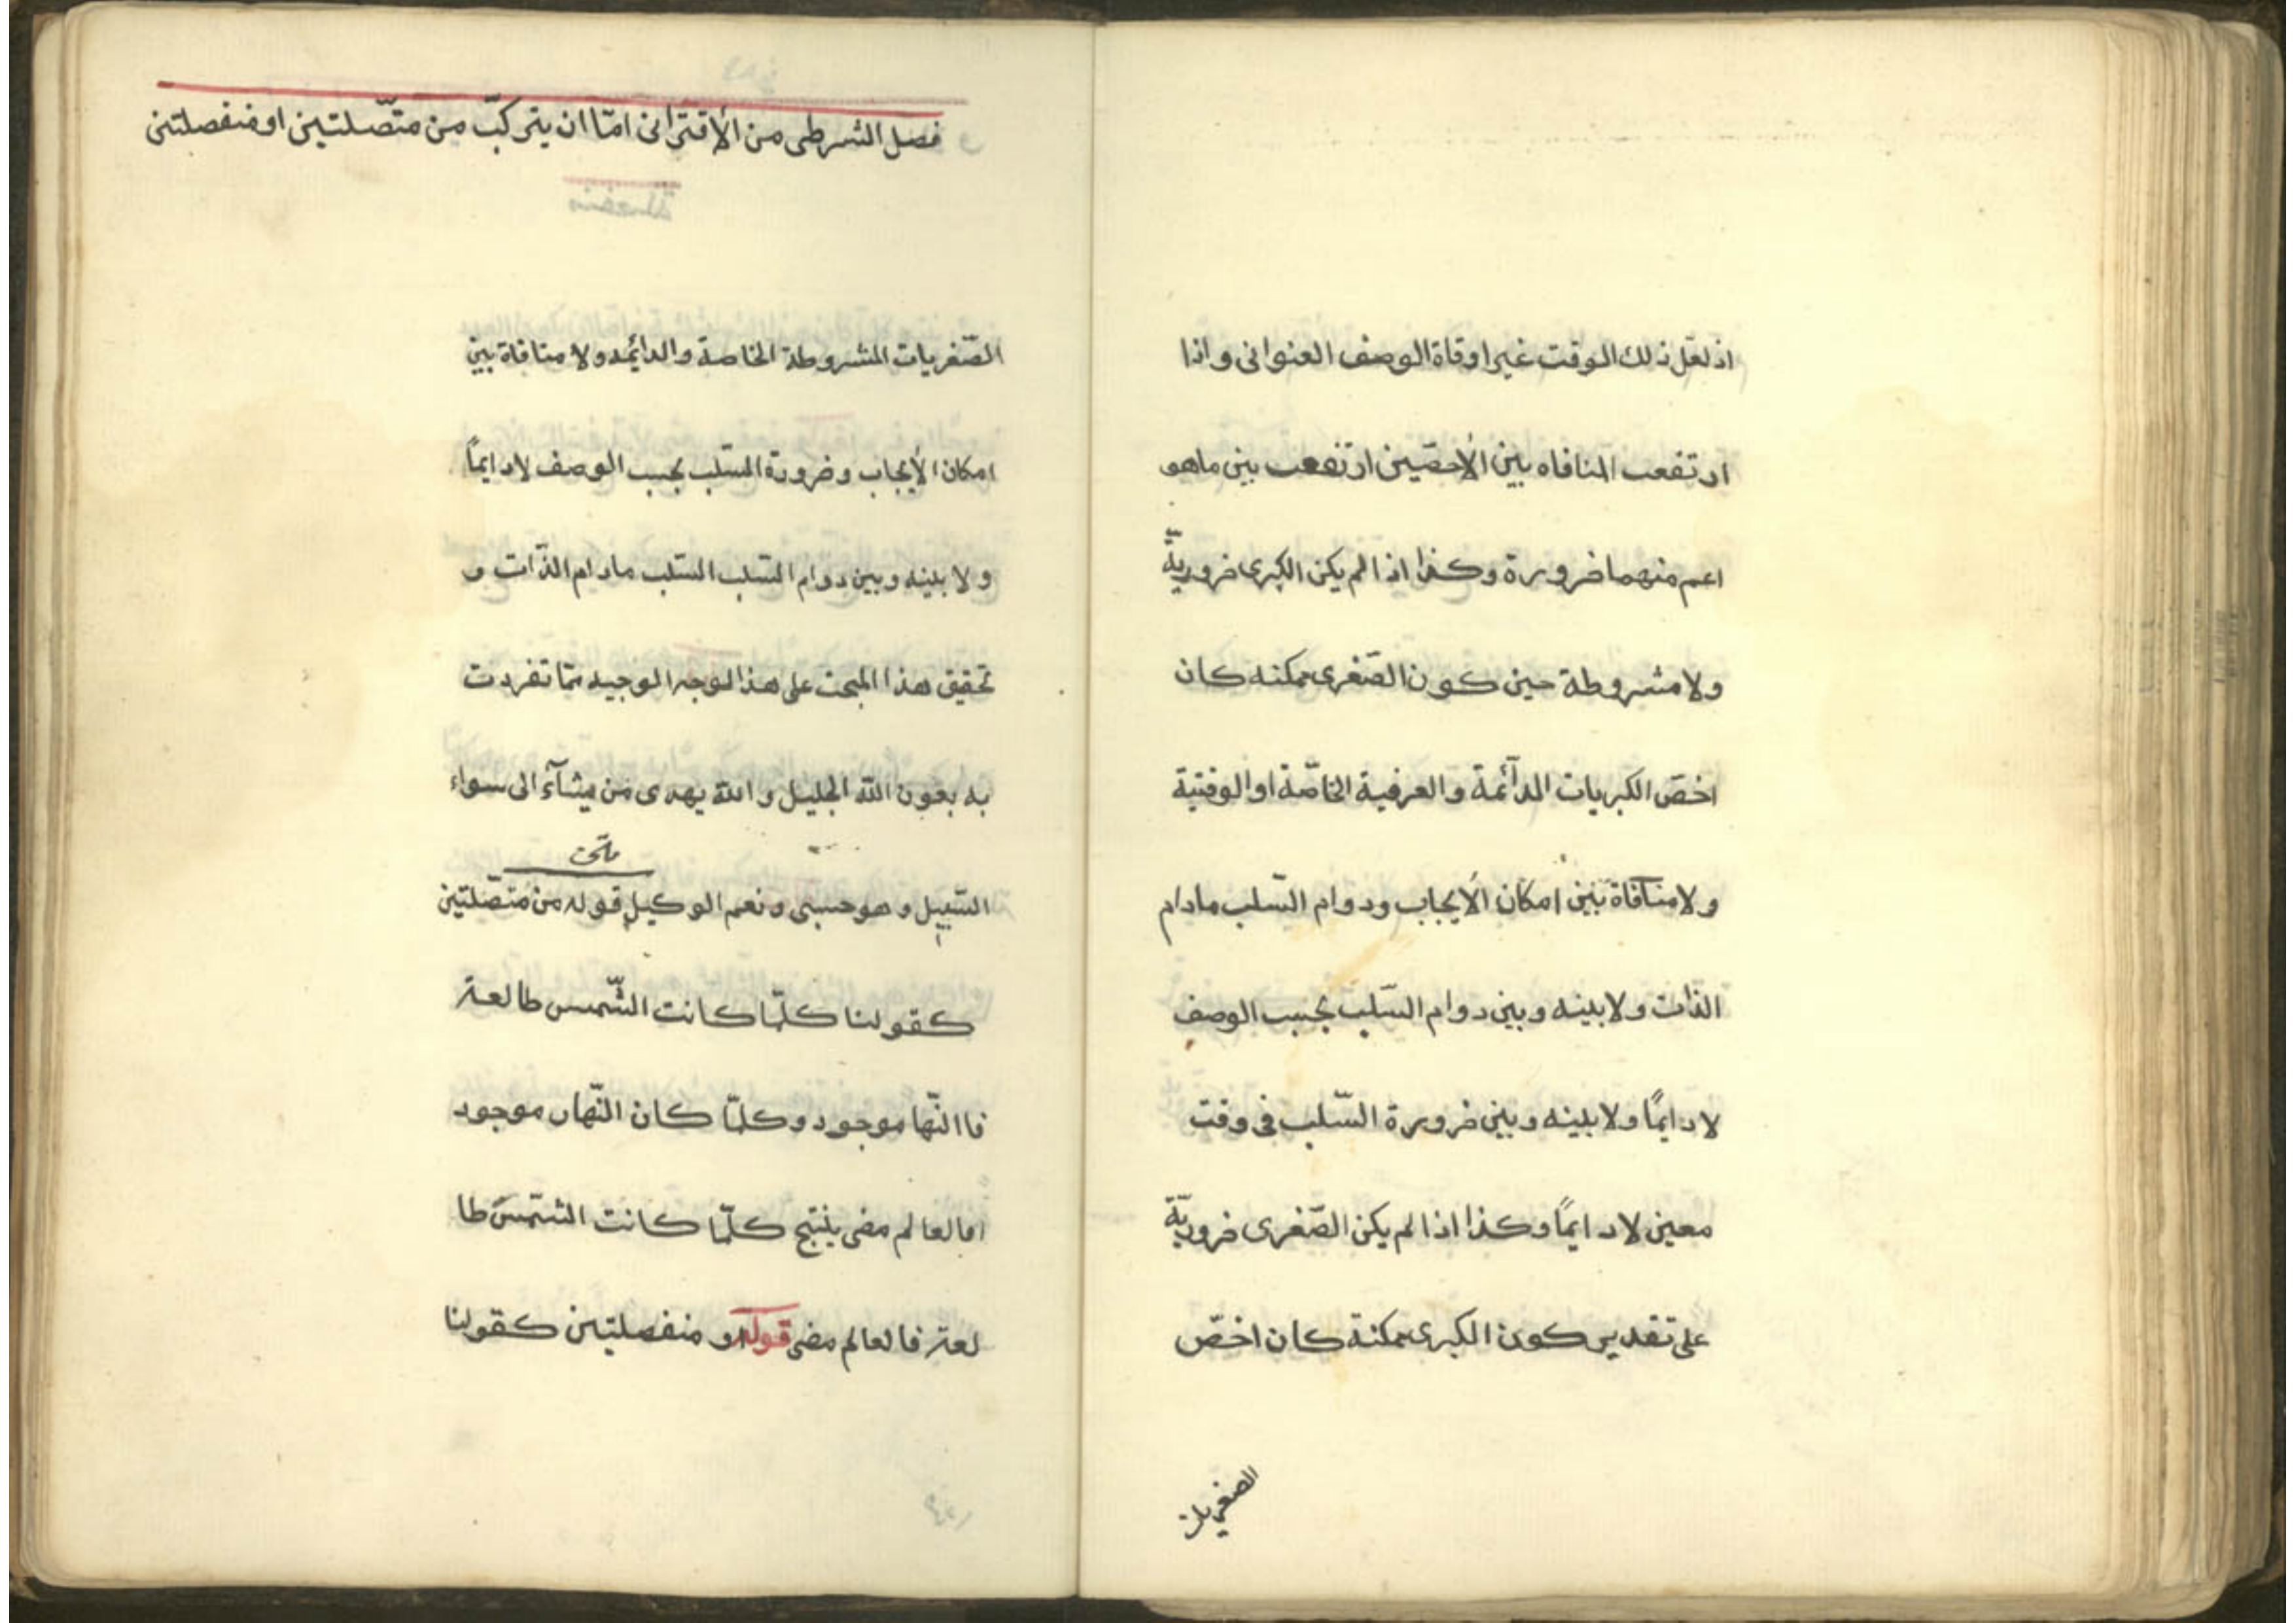 اذ لعل ذلك الوقت غير اوقاة الوصف العنوانى واذا
ارتفعت المنافاه بين الأخصّين ارتفعت بين ماهو
اعم منهما ضرورة وكذا اذا لم يكن الكبرى ضروريّة
ولا مشروطة حين كون الصّغرى ممكنه كان
اخصّ الكبريات الدآئمة والعرفية الخاصّة او الوقتية
ولا منافاة بين امكان الأيجاب ودوام السّلب مادام
الذات ولا بينه وبين دوام السّلب بحسب الوصف
لا دايمًا ولا بينه وبين ضرورة السّلب فى وقت
معين لا دايمًا وكذا اذا لم يكن الصّغرى ضروريّة
على تقدير كون الكبرى ممكنة كان اخصّ
الصغريات
فصل الشرطى من الأقترانى امّا ان يتركّب من متّصلتين او منفصلتين
الصّغريات المشروطة الخاصة والدائمه ولا منافاة بين
امكان الأيجاب وضرورة السّلب بحسب الوصف لا دايمًا
ولا بينه وبين دوام السّلب السّلب مادام الذّات و
تحقيق هذا المبحث على هذا الوجه الوجيه ممّا تفردت
به بعون الله الجليل والله يهدى من يشآء الى سواء
السّبيل وهو حسبى ونعم الوكيل قوله من متّصلتين
كقولنا كلّما كانت الشّمس طالعة
فاالنّها موجود وكلّما كان النّهار موجود
افالعالم مضى ينتج كلّما كانت الشّمس طا
لعة فالعالم مضى قوله او منفصلتين كقولنا